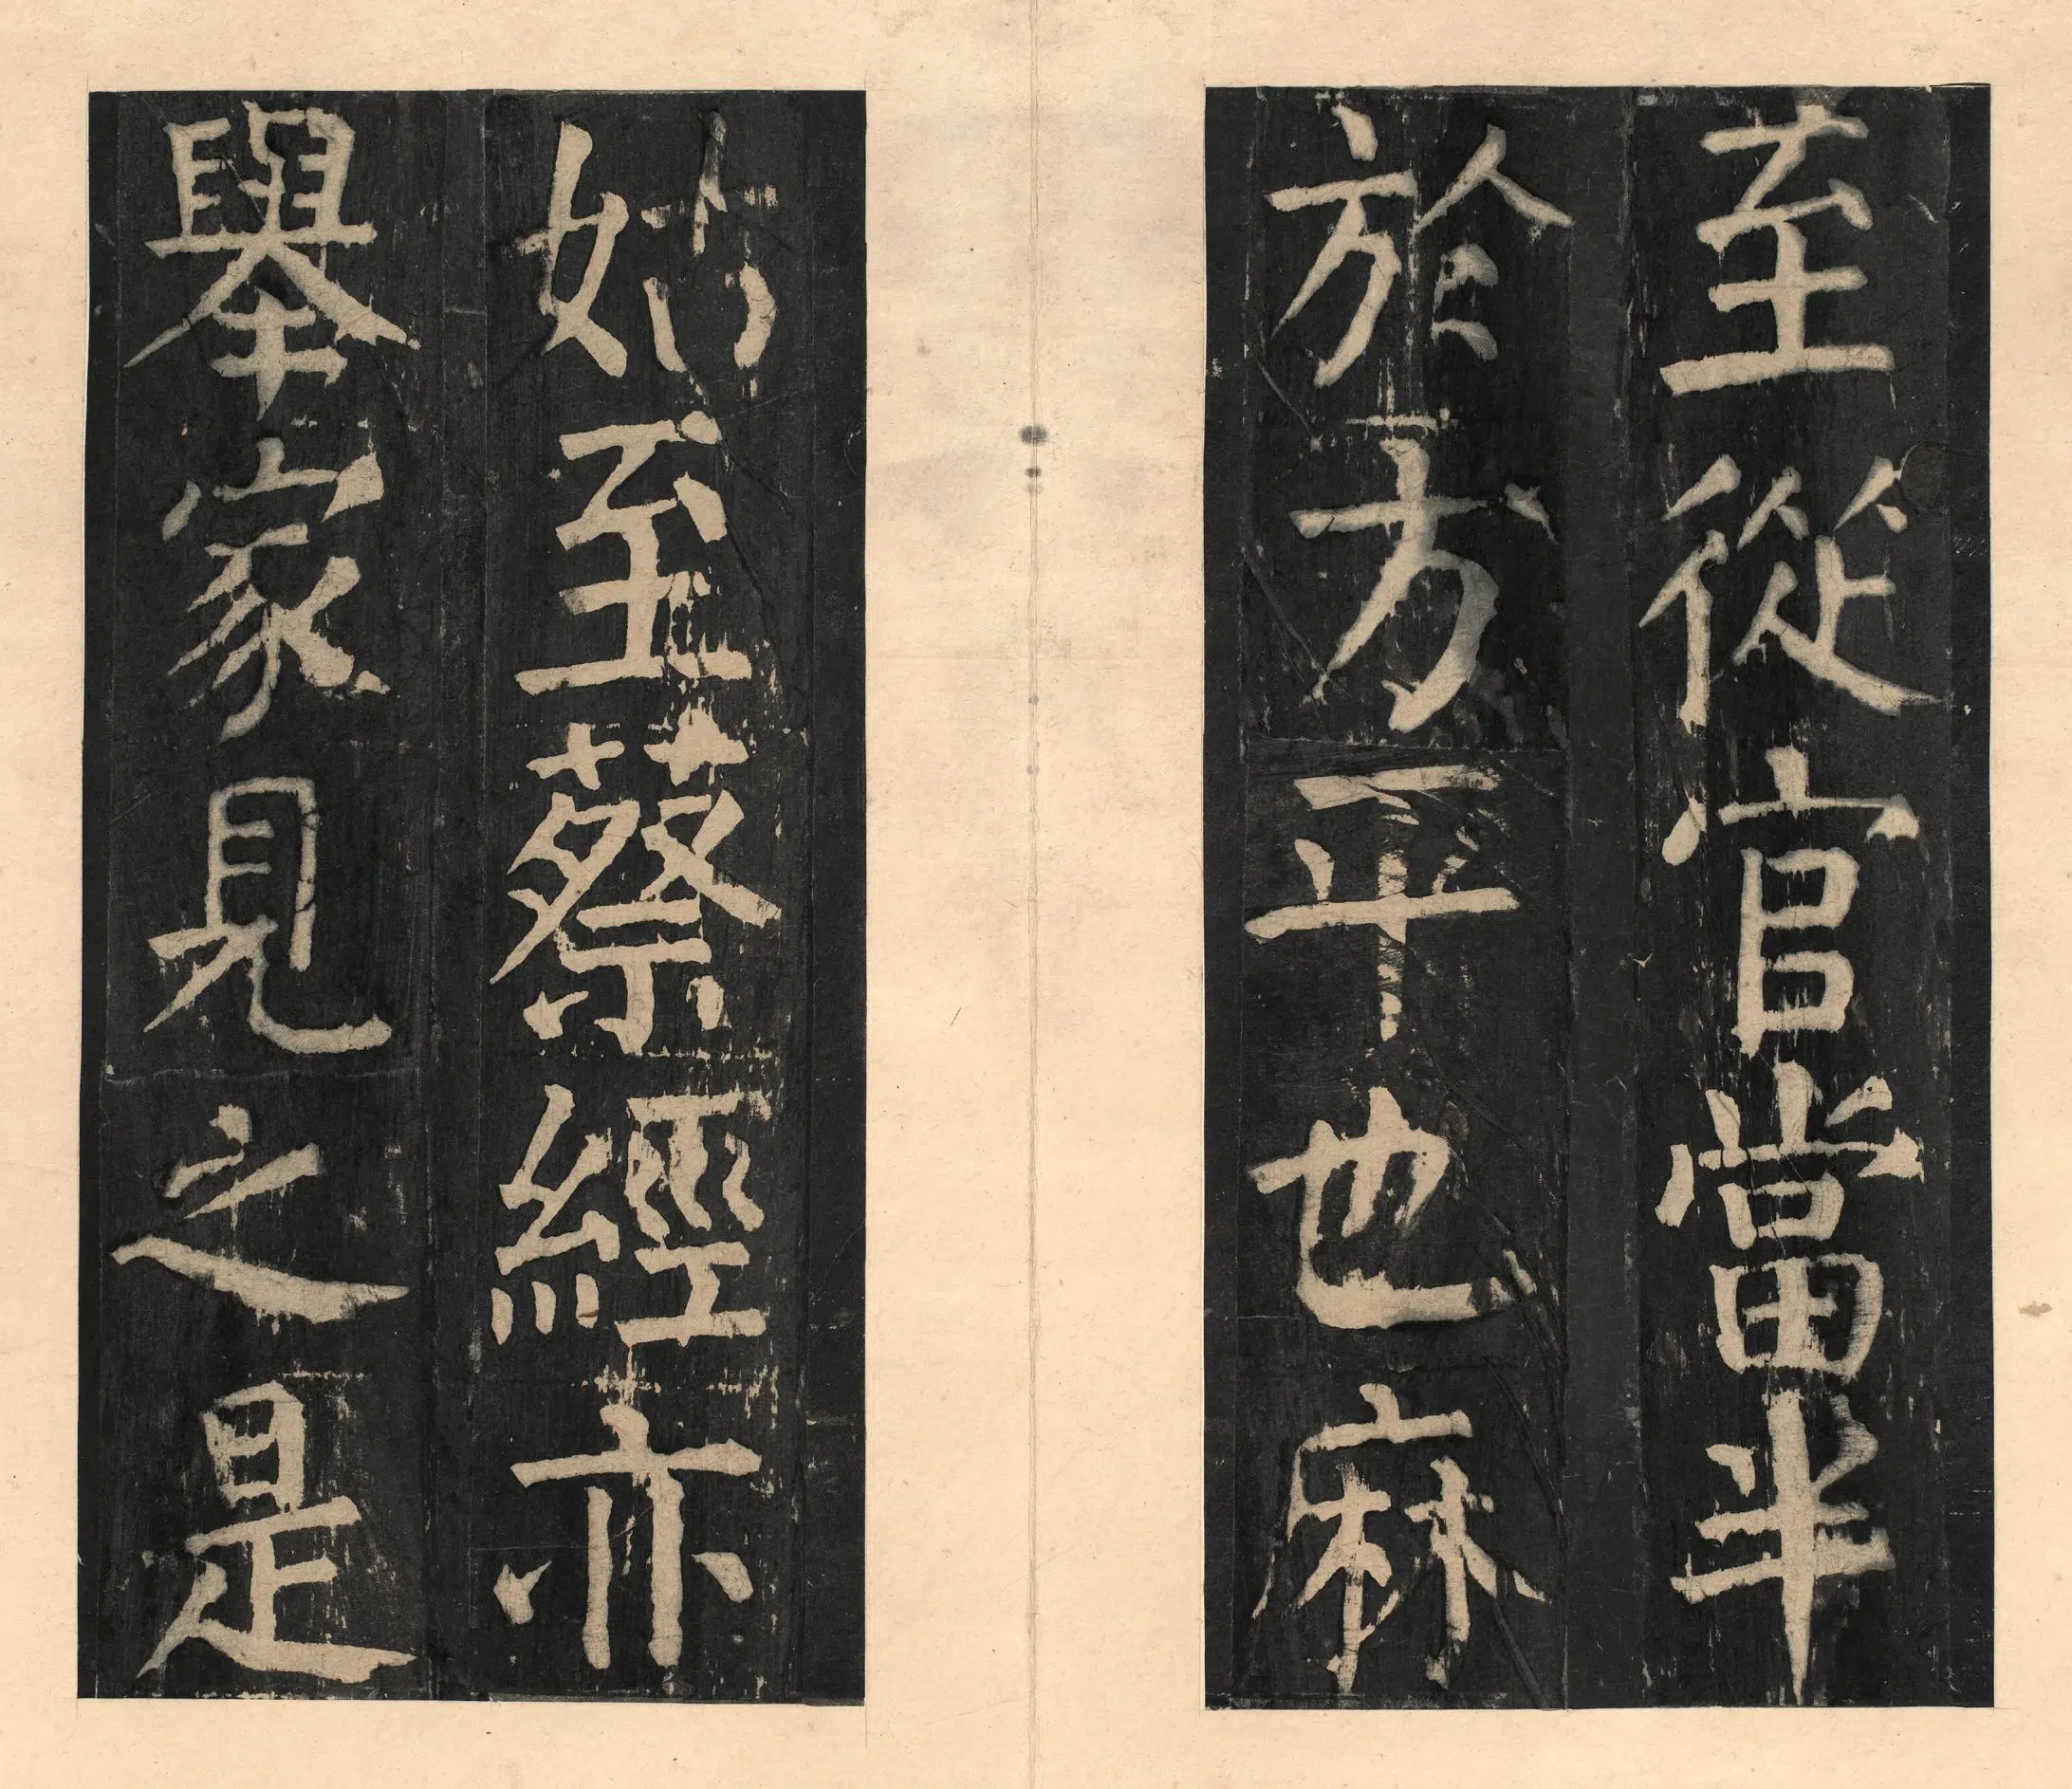 至從官當半
於方平也麻
姑至蔡經亦
舉家見之是